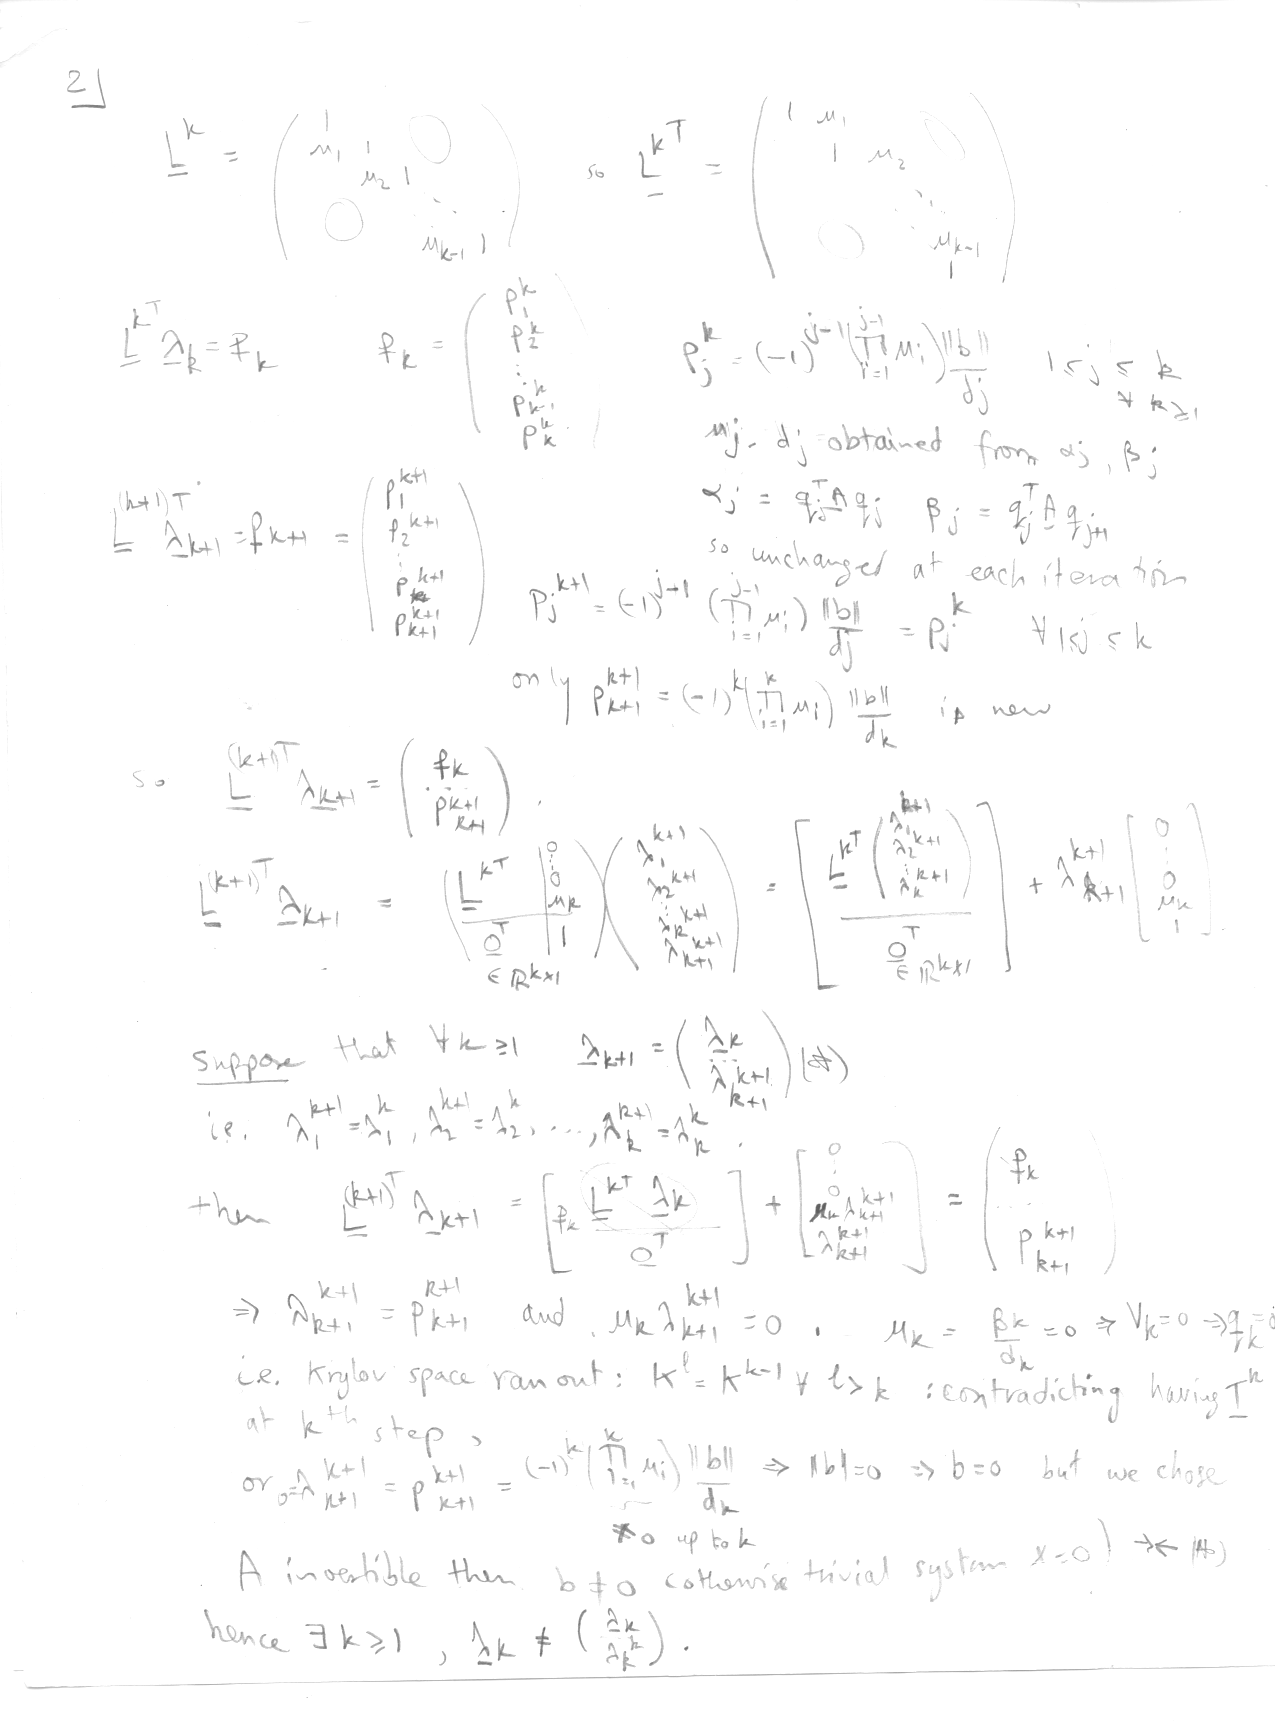 2]
L^k = ( 1 ; μ_1 1 ; μ_2 1 ; ⋱ ; μ_{k-1} 1 ) so L^{kT} = ( 1 μ_1 ; 1 μ_2 ; ⋱ ; μ_{k-1} ; 1 )
L^{kT} λ_k = f_k f_k = ( p_1^k ; p_2^k ; ⋮ ; p_{k-1}^k ; p_k^k ) p_j^k = (-1)^{j-1} (∏_{i=1}^{j-1} μ_i) ||b||/d_j 1 ≤ j ≤ k ∀ k ≥ 1
μ_j, d_j obtained from α_j, β_j
α_j = q_j^T A q_j β_j = q_j^T A q_{j+1}
so unchanged at each iteration
L^{(k+1)T} λ_{k+1} = f_{k+1} = ( p_1^{k+1} ; p_2^{k+1} ; ⋮ ; p_k^{k+1} ; p_{k+1}^{k+1} )
p_j^{k+1} = (-1)^{j+1} (∏_{i=1}^{j-1} μ_i) ||b||/d_j = p_j^k ∀ 1≤j≤k
only p_{k+1}^{k+1} = (-1)^k (∏_{i=1}^{k} μ_i) ||b||/d_k is new
so L^{(k+1)T} λ_{k+1} = ( f_k ; ... ; p_{k+1}^{k+1} ) .
L^{(k+1)T} λ_{k+1} = ( L^{kT} | 0 ⋮ 0 μ_k ; 0^T | 1 ) ( λ_1^{k+1} ; λ_2^{k+1} ; ⋮ ; λ_k^{k+1} ; λ_{k+1}^{k+1} ) = [ L^{kT} ( λ_1^{k+1} ; λ_2^{k+1} ; ⋮ ; λ_k^{k+1} ) ; 0^T ] + λ_{k+1}^{k+1} [ 0 ; ⋮ ; 0 ; μ_k ; 1 ] .
∈ ℝ^{k×1} ∈ ℝ^{k×1}
suppose that ∀ k ≥ 1 λ_{k+1} = ( λ_k ; ... ; λ_{k+1}^{k+1} ) (*)
i.e. λ_1^{k+1} = λ_1^k , λ_2^{k+1} = λ_2^k , ..., λ_k^{k+1} = λ_k^k .
then L^{(k+1)T} λ_{k+1} = [ f_k L^{kT} λ_k ; 0^T ] + [ 0 ; ⋮ ; 0 ; μ_k λ_{k+1}^{k+1} ; λ_{k+1}^{k+1} ] = ( f_k ; ... ; p_{k+1}^{k+1} )
⇒ λ_{k+1}^{k+1} = p_{k+1}^{k+1} and μ_k λ_{k+1}^{k+1} = 0 . μ_k = β_k/d_k = 0 ⇒ V_k = 0 ⇒ q_k =
i.e. Krylov space ran out : K^l = K^{k-1} ∀ l > k : contradicting having T^k
at k^{th} step,
or 0 = λ_{k+1}^{k+1} = p_{k+1}^{k+1} = (-1)^k (∏_{i=1}^{k} μ_i) ||b||/d_k ⇒ ||b|| = 0 ⇒ b = 0 but we chose
≠ 0 up to k
A invertible then b ≠ 0 (otherwise trivial system x = 0) →← (*)
hence ∃ k ≥ 1 , λ_k ≠ ( λ_k ; λ_k^k ) .